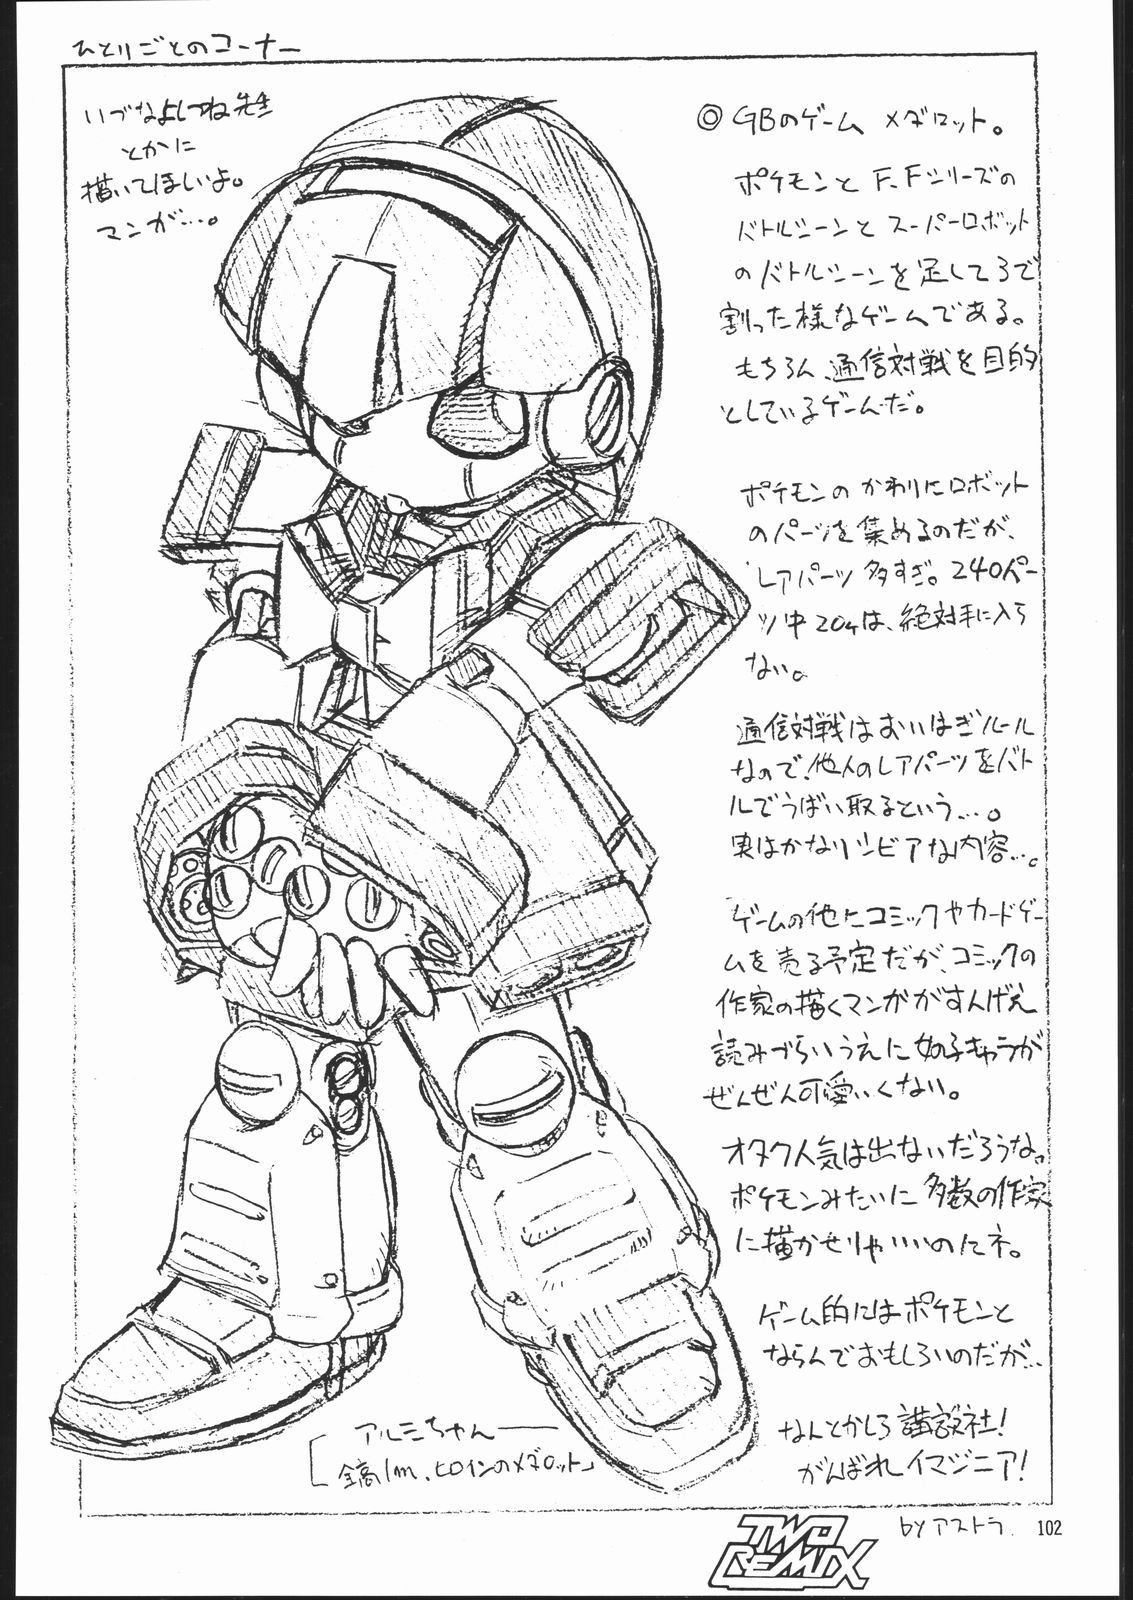 ひとりごとのコーナー
いづなよしつね先生
とかに
描いてほしいよ。
マンが…。
◎GBのゲーム メダロット。
ポケモンとF.Fシリーズの
バトルシーンとスーパーロボット
のバトルシーンを足して3で
割った様なゲームである。
もちろん、通信対戦を目的
としているゲームだ。
ポケモンのかわりにロボット
のパーツを集めるのだが、
レアパーツ多すぎ。240パー
ツ中204は、絶対手に入ら
ない。
通信対戦はおいはぎルール
なので、他人のレアパーツをバト
ルでうばい取るという…。
実はかなりシビアな内容…。
ゲームの他にコミックやカードゲー
ムを売る予定だが、コミックの
作家の描くマンガがすんげえ
読みづらいうえに女の子キャラが
ぜんぜん可愛いくない。
オタク人気は出ないだろうな。
ポケモンみたいに多数の作家
に描かせりゃいいのにネ。
ゲーム的にはポケモンと
ならんでおもしろいのだが…
なんとかしろ講談社!
がんばれイマジニア!
アルミちゃん
全高1m、ヒロインのメダロット」
by アストラ. 102
TWO
REMIX